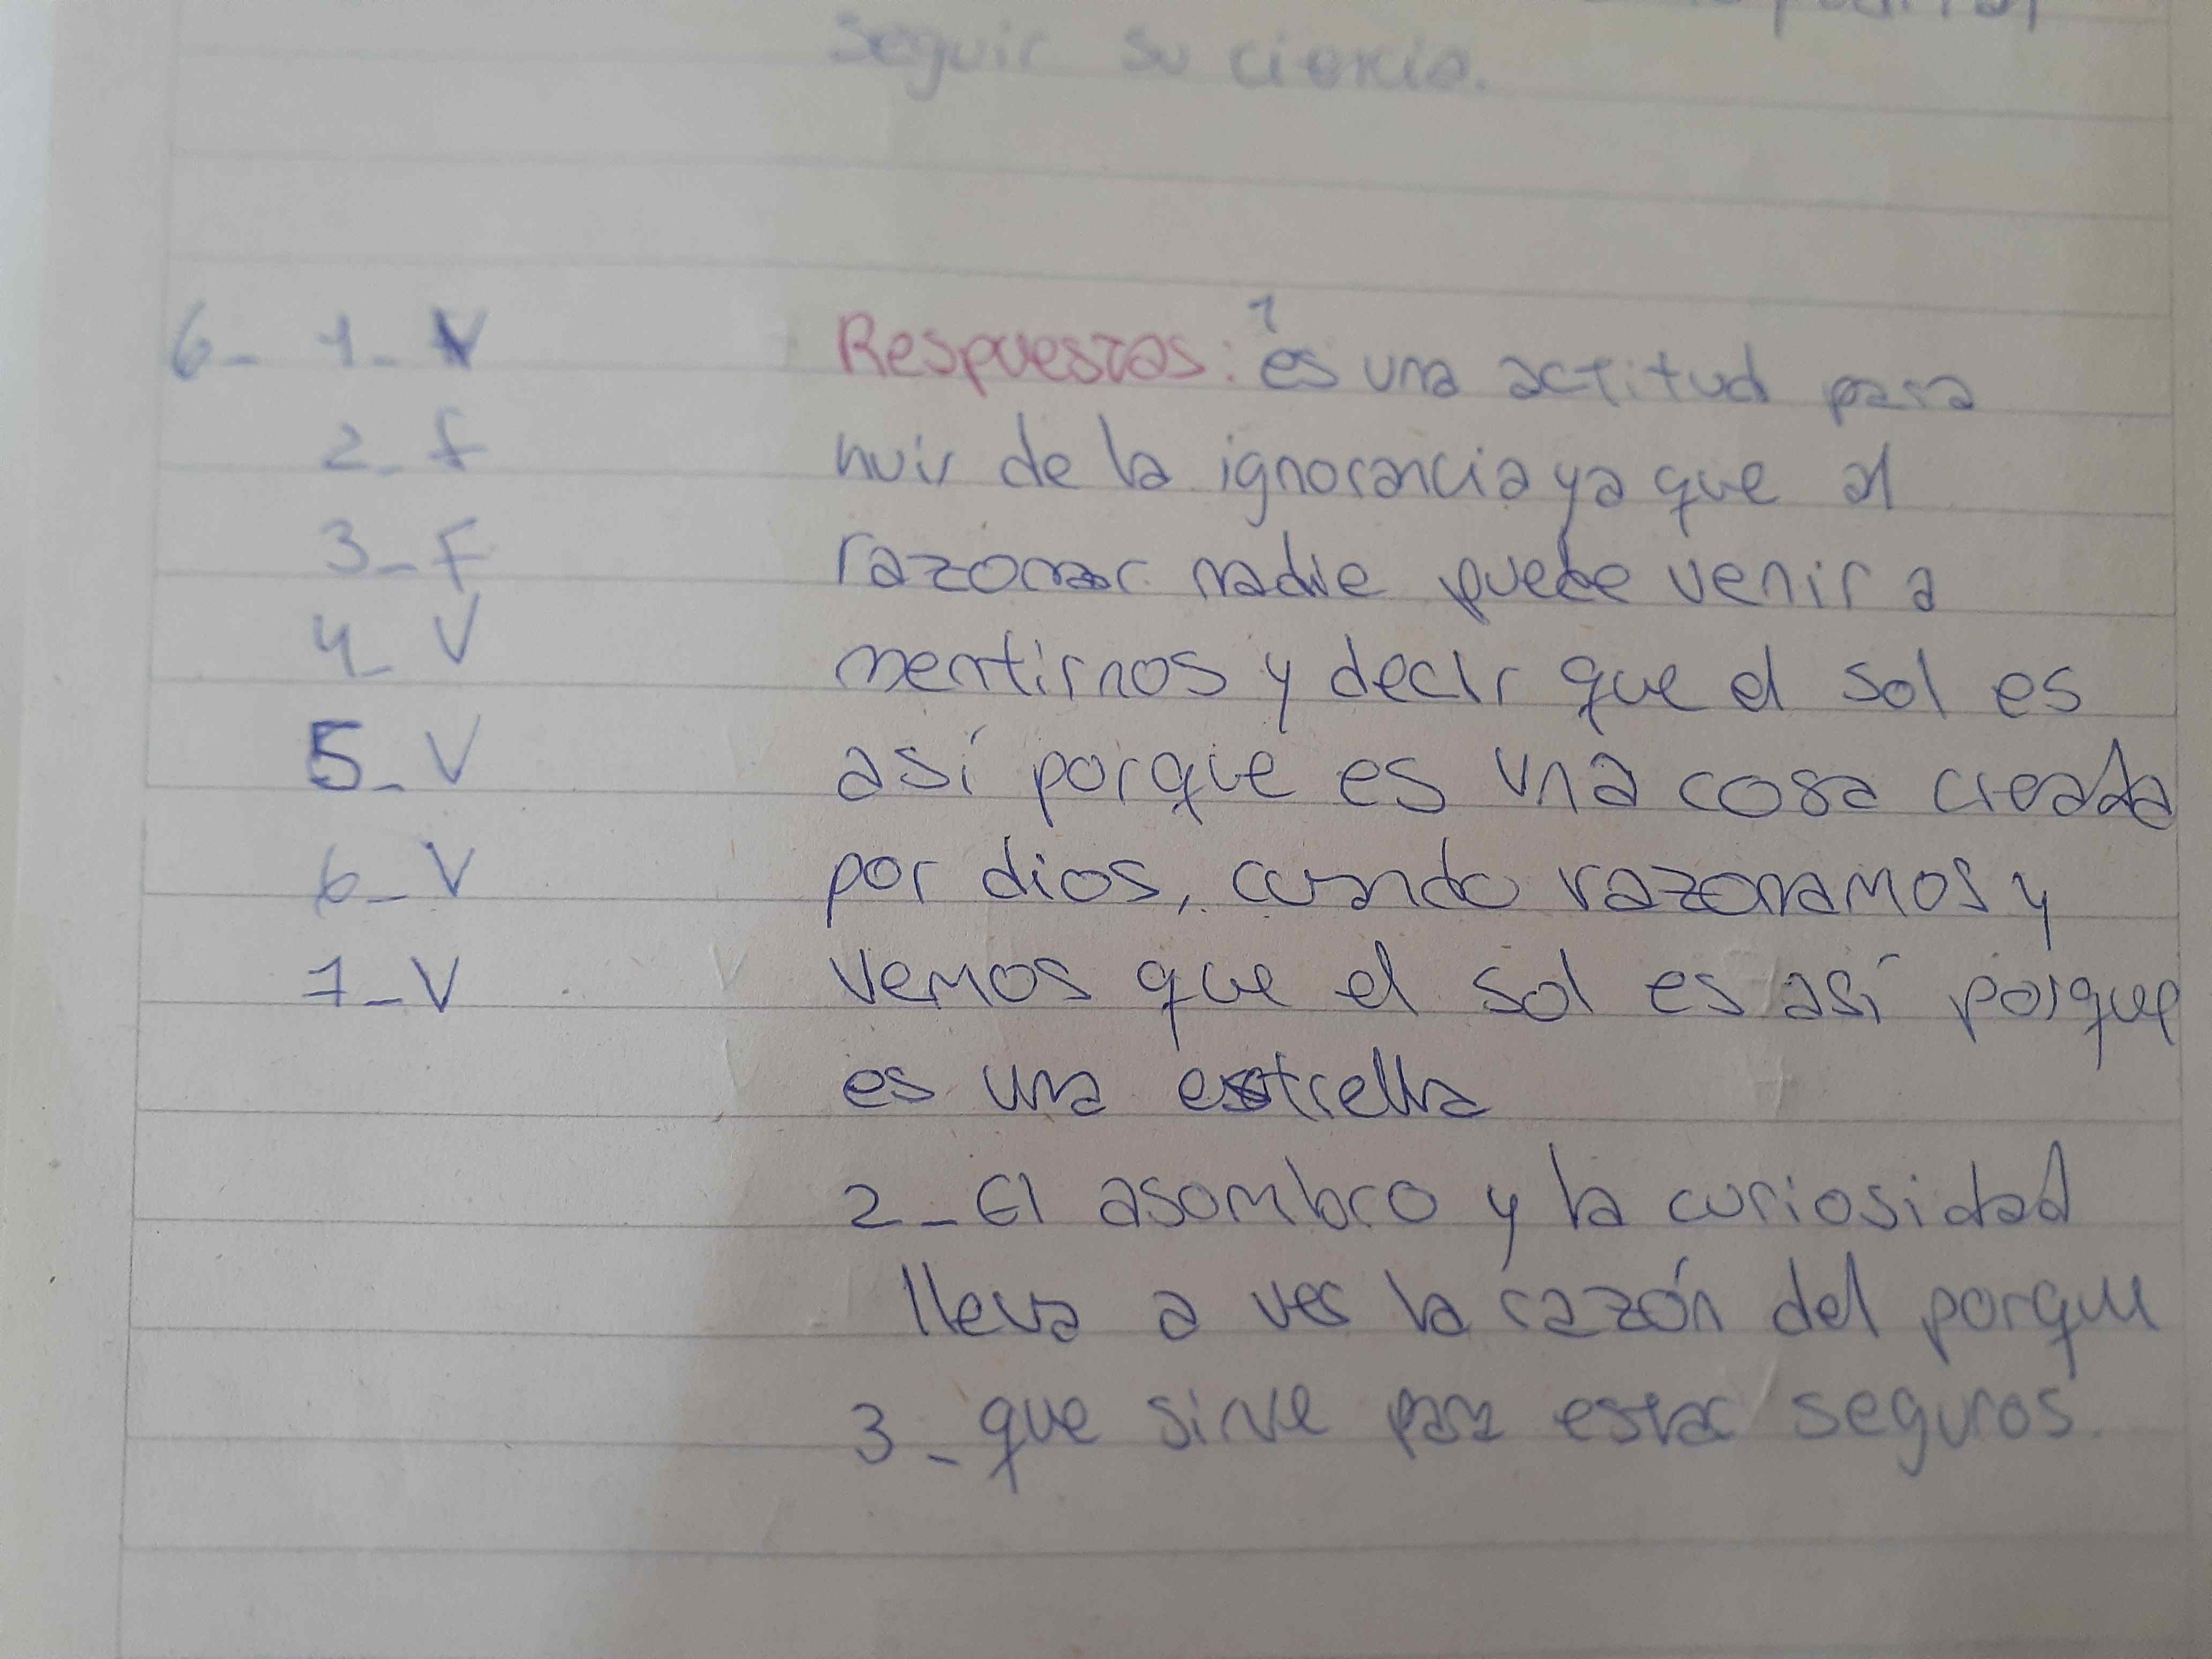 seguir su ciencia.
6- 1- V
2- f
3- F
4- V
5- V
6- V
7- V
Respuestas: 1 es una actitud para
huir de la ignorancia ya que al
razonar nadie puede venir a
mentirnos y decir que el sol es
así porque es una cosa creada
por dios, cuando razonamos y
vemos que el sol es así porque
es una estrella
2- El asombro y la curiosidad
lleva a ver la razón del porque
3- que sirve para estar seguros.